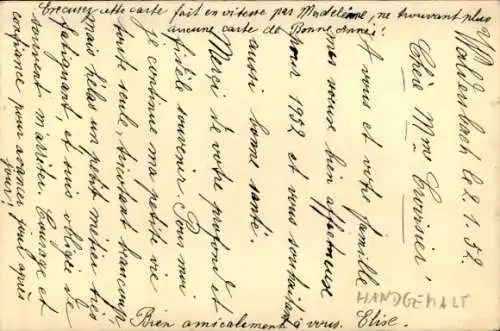 Excusez cette carte fait en vitesse par Madeleine, ne trouvant plus
aucune carte de Bonne Année!
Wahlenbach le 2.1.52.
Chèr Mme
A vous et votre famille
mes voeux bien affectueux
pour 1952 et vous souhaitant
aussi bonne santé.
Merci de votre profond et
fidèle souvenir. Pour moi
je continue ma petite vie
toute seule, tricotant beaucoup
mais hélas un petit métier très
fatigant, et suis obligée de
souvent m'arrêter. Courage et
confiance pour avancer jour après
jour!
Bien amicalement à vous. Elise.
HANDGEMALT